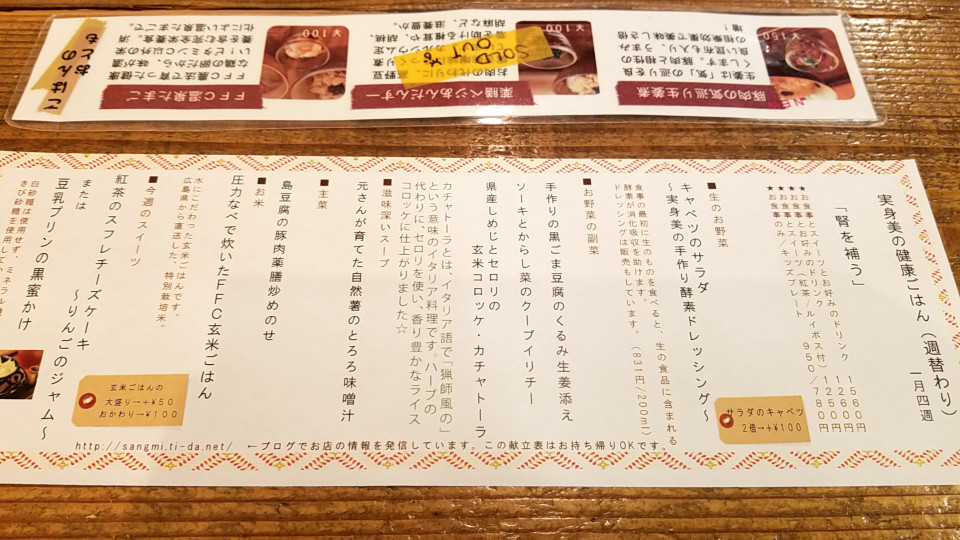 実身美の健康ごはん(週替わり)
一月四週
「腎を補う」
★お食事とスイーツとお好みのドリンク 1560円
★お食事とお好みのドリンク 1260円
★お食事とスイーツ(紅茶/ルイボス付)1250円
★お食事のみ/キッズプレート 950/780円
■生のお野菜
キャベツのサラダ
~実身美の手作り酵素ドレッシング~
食事の最初に生のものを食べると、生の食品に含まれる
酵素が消化吸収を助けます。
ドレッシングは販売もしています。(831円/200ml)
サラダのキャベツ
2倍→+¥100
■お野菜の副菜
手作りの黒ごま豆腐のくるみ生姜添え
ソーキとからし菜のクーブイリチー
県産しめじとセロリの
玄米コロッケ・カチャトーラ
カチャトーラとは、イタリア語で「猟師風の」
という意味のイタリア料理です。ハーブの
代わりにセロリを使い、香り豊かなライス
コロッケに仕上がりました☆
■滋味深いスープ
元さんが育てた自然薯のとろろ味噌汁
■主菜
島豆腐の豚肉薬膳炒めのせ
■お米
圧力なべで炊いたFFC玄米ごはん
水にこだわった玄米ごはんです。
広島県から直送した、特別栽培米。
玄米ごはんの
大盛り→+¥50
おかわり→+¥100
■今週のスイーツ
紅茶のスフレチーズケーキ
~りんごのジャム~
または
豆乳プリンの黒蜜かけ
白砂糖は使用せず、ミネラル
きび砂糖を使用してい
http://sangmi.ti-da.net/ ←ブログでお店の情報を発信しています。この献立表はお持ち帰りOKです。
ごはんのおとも
FFC温泉たまご
FFC農法で育った健康
な鶏の卵だから、味が濃
い!ビタミンC以外の栄
養を含む完全栄養食。消
化によい温泉たまごで。
¥100
薬膳ベジあんだんすー
お肉の代わりに、高野豆
胡麻など、滋養豊か。
¥100
SOLD OUT
豚肉の気巡り生姜煮
生姜は「気」の巡りを良
くします。豚肉と相性の
良い昆布も入り、うまみ
の相乗効果で美味しさ倍
増!
¥150